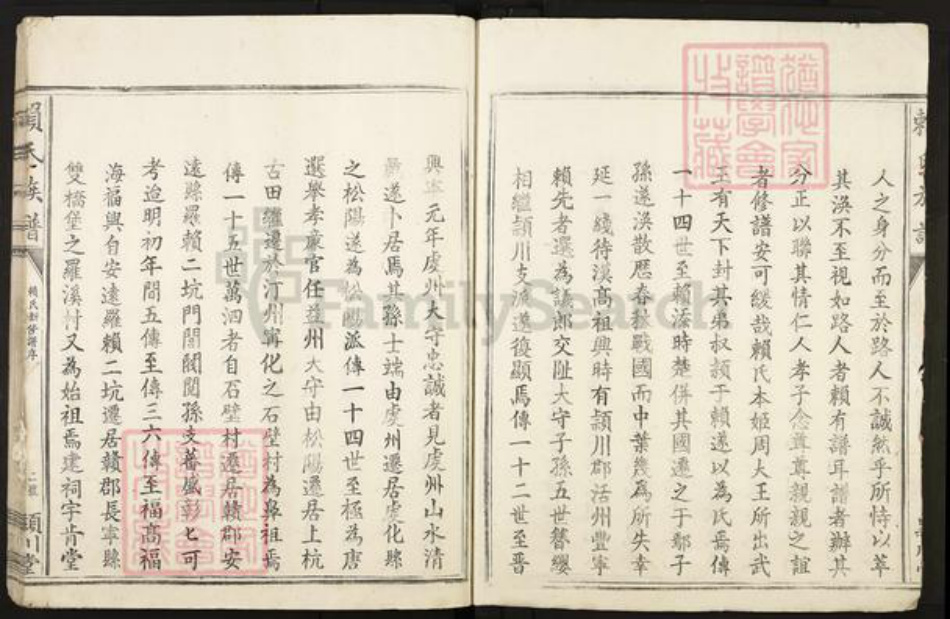 人之身分而至於路人不誠然乎所恃以萃
其渙不至視如路人者賴有譜耳譜者辦其
分正以聯其情仁人孝子念尊尊親親之誼
者修譜安可緩哉賴氏本姬周大王所出武
王有天下封其弟叔頴于賴遂以為氏焉傳
一十四世至賴添時楚併其國遷之于鄢子
孫遂渙散歷春秋戰國而中葉幾為所失幸
延一綫待漢髙祖興時有頴川郡活州豐寧
賴先者選為議郎交趾大守子孫五世簪纓
相繼頴川支派遂復顯焉傳一十二世至晋
興寧元年虔州大守忠誠者見虔州山水清
麗遂卜居焉其孫士端由虔州遷居處化縣
之松陽遂為松陽派傳一十四世至極為唐
選舉孝廉官任益州大守由松陽遷居上杭
古田繼遷於汀州寧化之石壁村為鼻祖焉
傳一十五世萬泗者自石壁村遷居贛郡安
遠縣羅賴二坑門閭閥閱孫支蕃盛彰匕可
考迨明初年間五傳至傳三六傳至福髙福
海福興自安遠羅賴二坑遷居贛郡長寧縣
雙橋堡之羅溪村又為始祖焉建祠宇肯堂
賴氏族譜
賴氏新修譜序
頴川堂
FamilySearch